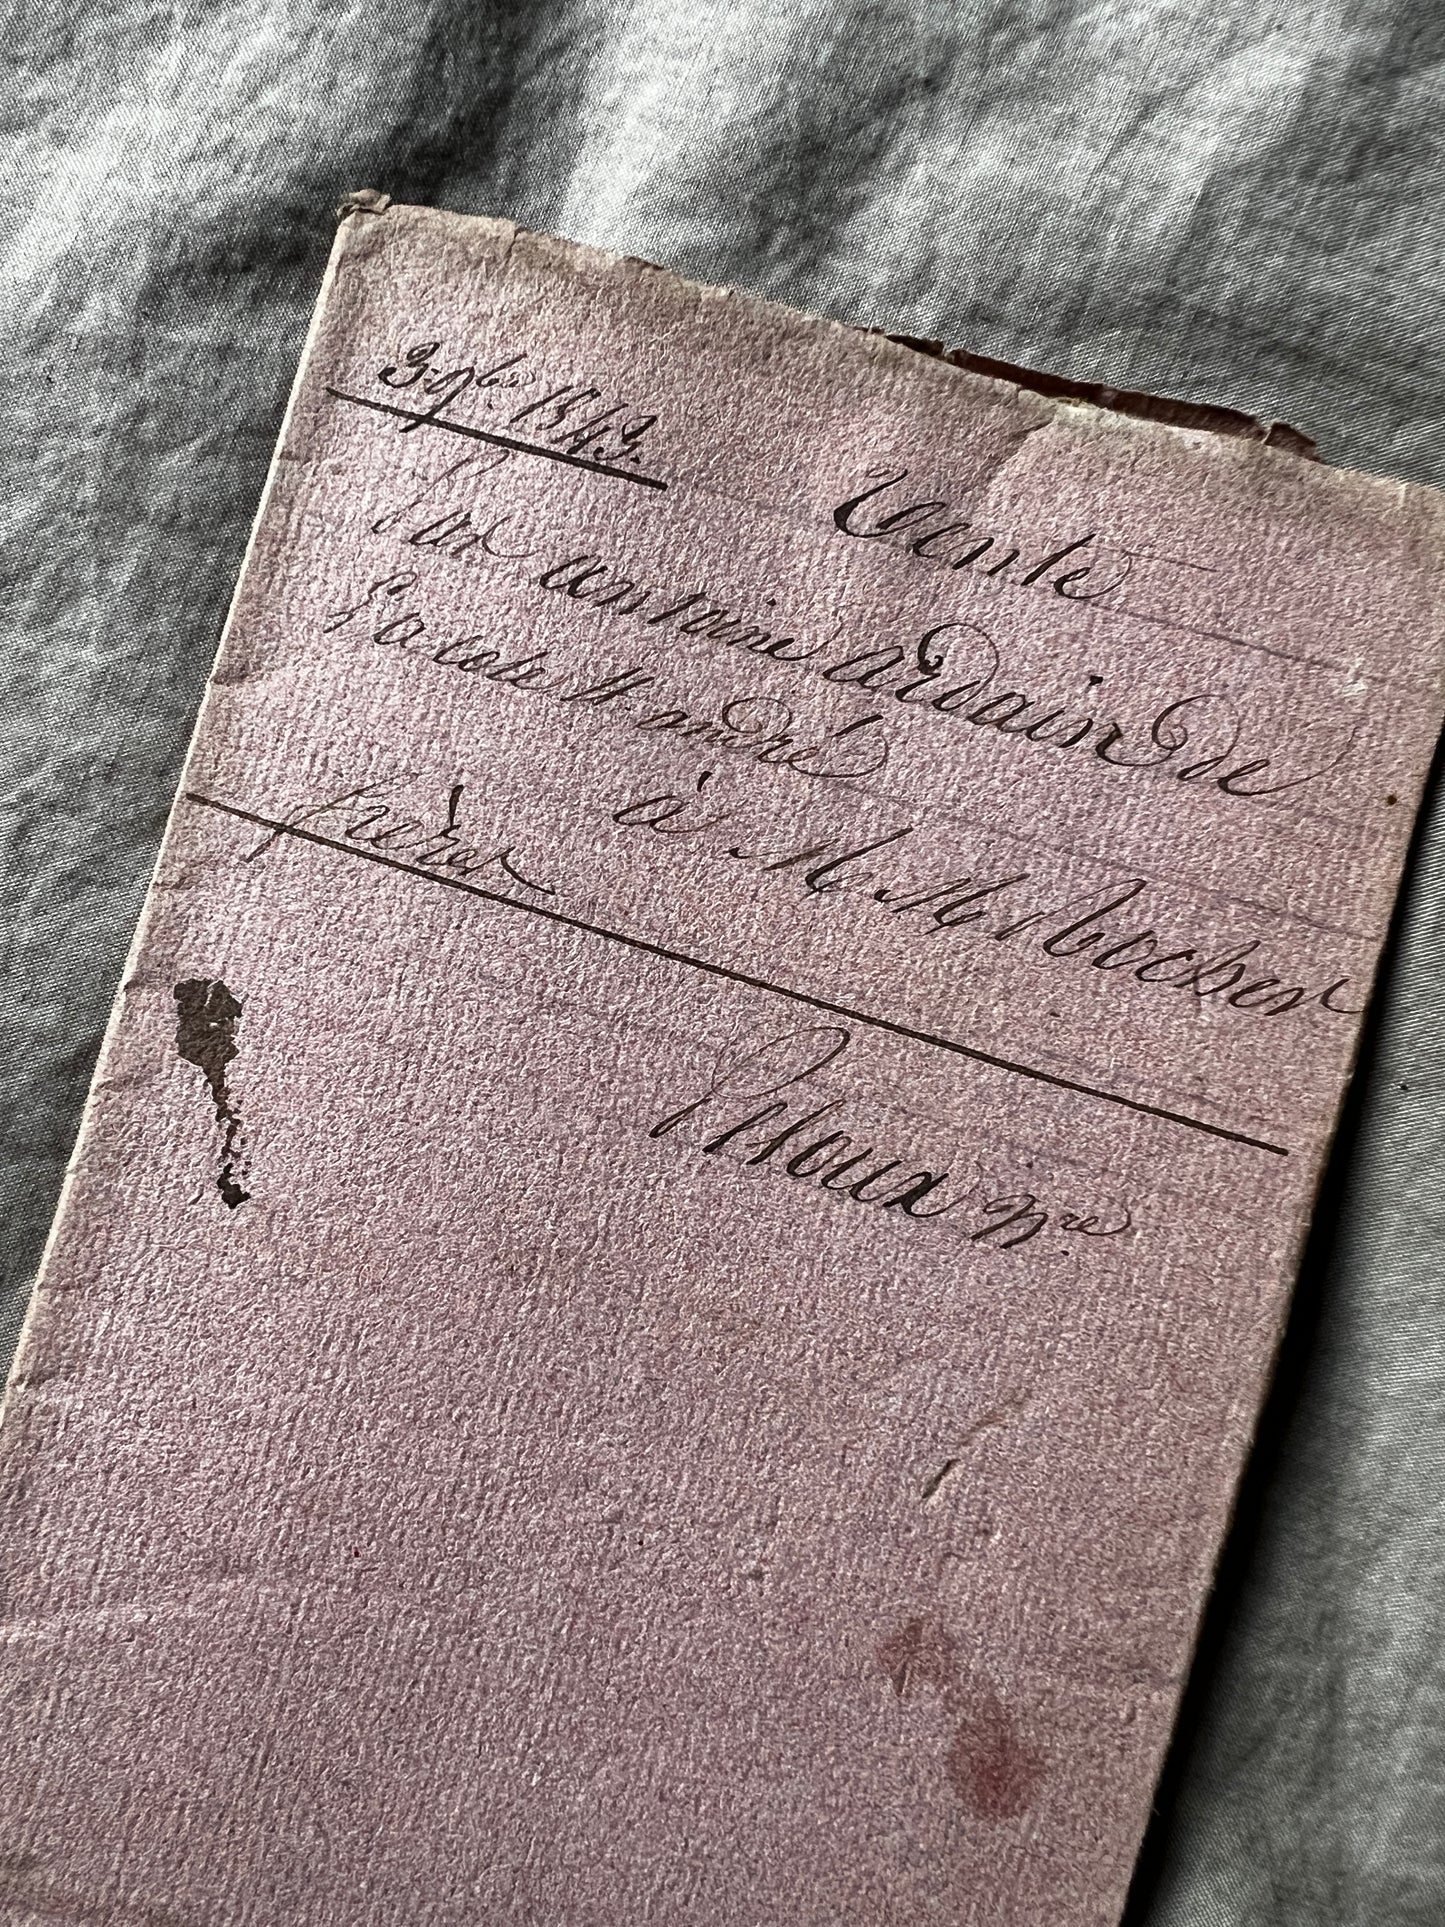 3. 9bre 1843.
Vente
Par antoine ardain de
Lacote St. andré
à M M Rocher
frères
Pithoux Nre